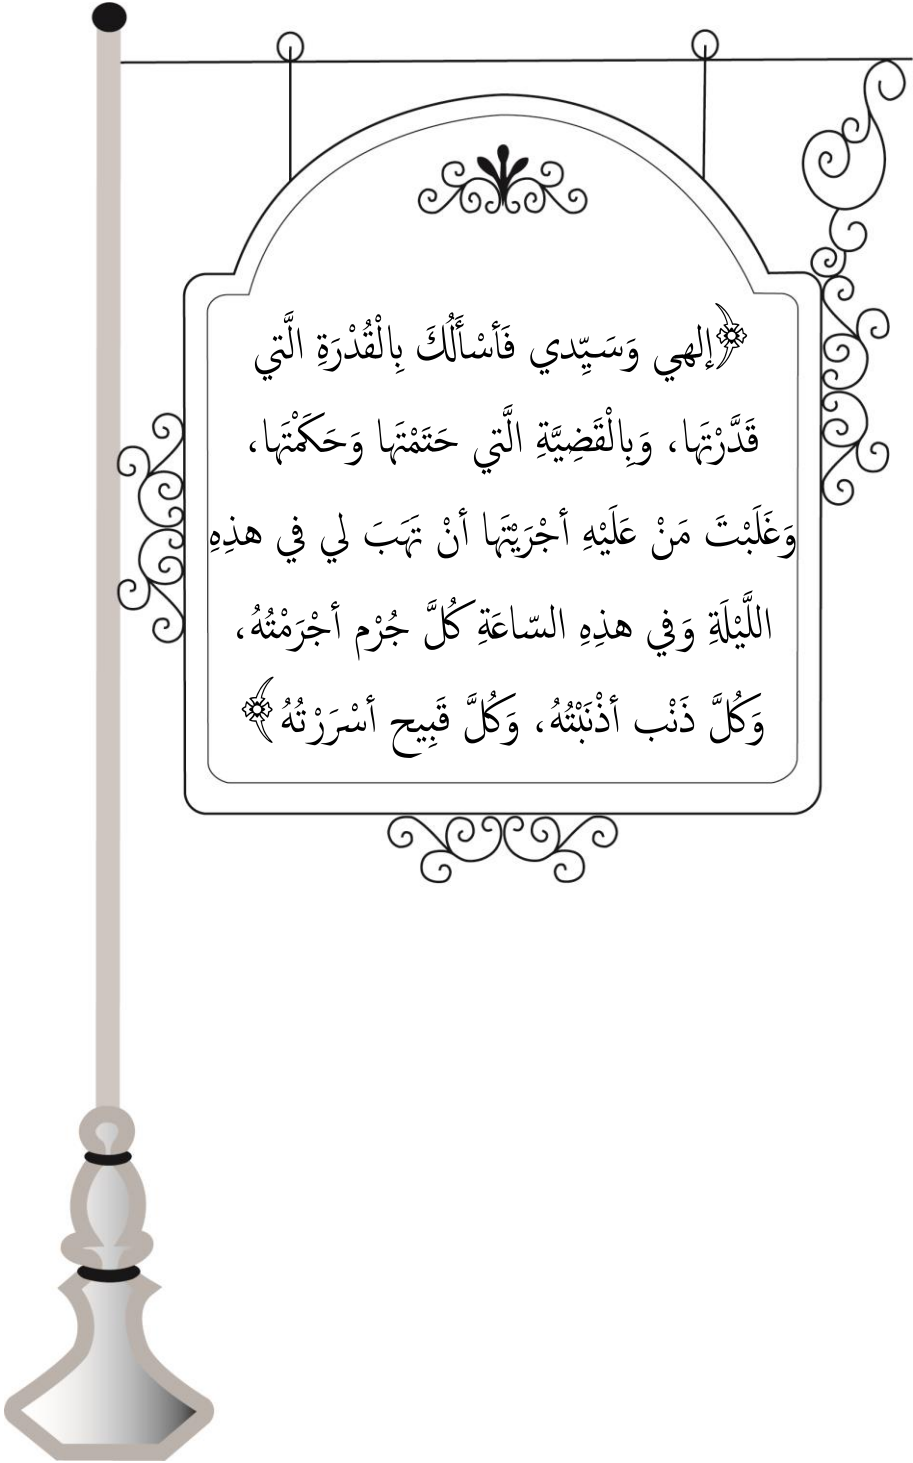 ﴿إلهي وَسَيِّدي فَأسْأَلُكَ بِالْقُدْرَةِ الَّتي
قَدَّرْتَها، وَبِالْقَضِيَّةِ الَّتي حَتَمْتَها وَحَكَمْتَها،
وَغَلَبْتَ مَنْ عَلَيْهِ أجْرَيْتَها أنْ تَهَبَ لي في هذِهِ
اللَّيْلَةِ وَفي هذِهِ السّاعَةِ كُلَّ جُرْم أجْرَمْتُهُ،
وَكُلَّ ذَنْب أذْنَبْتُهُ، وَكُلَّ قَبِيح أسْرَرْتُهُ﴾